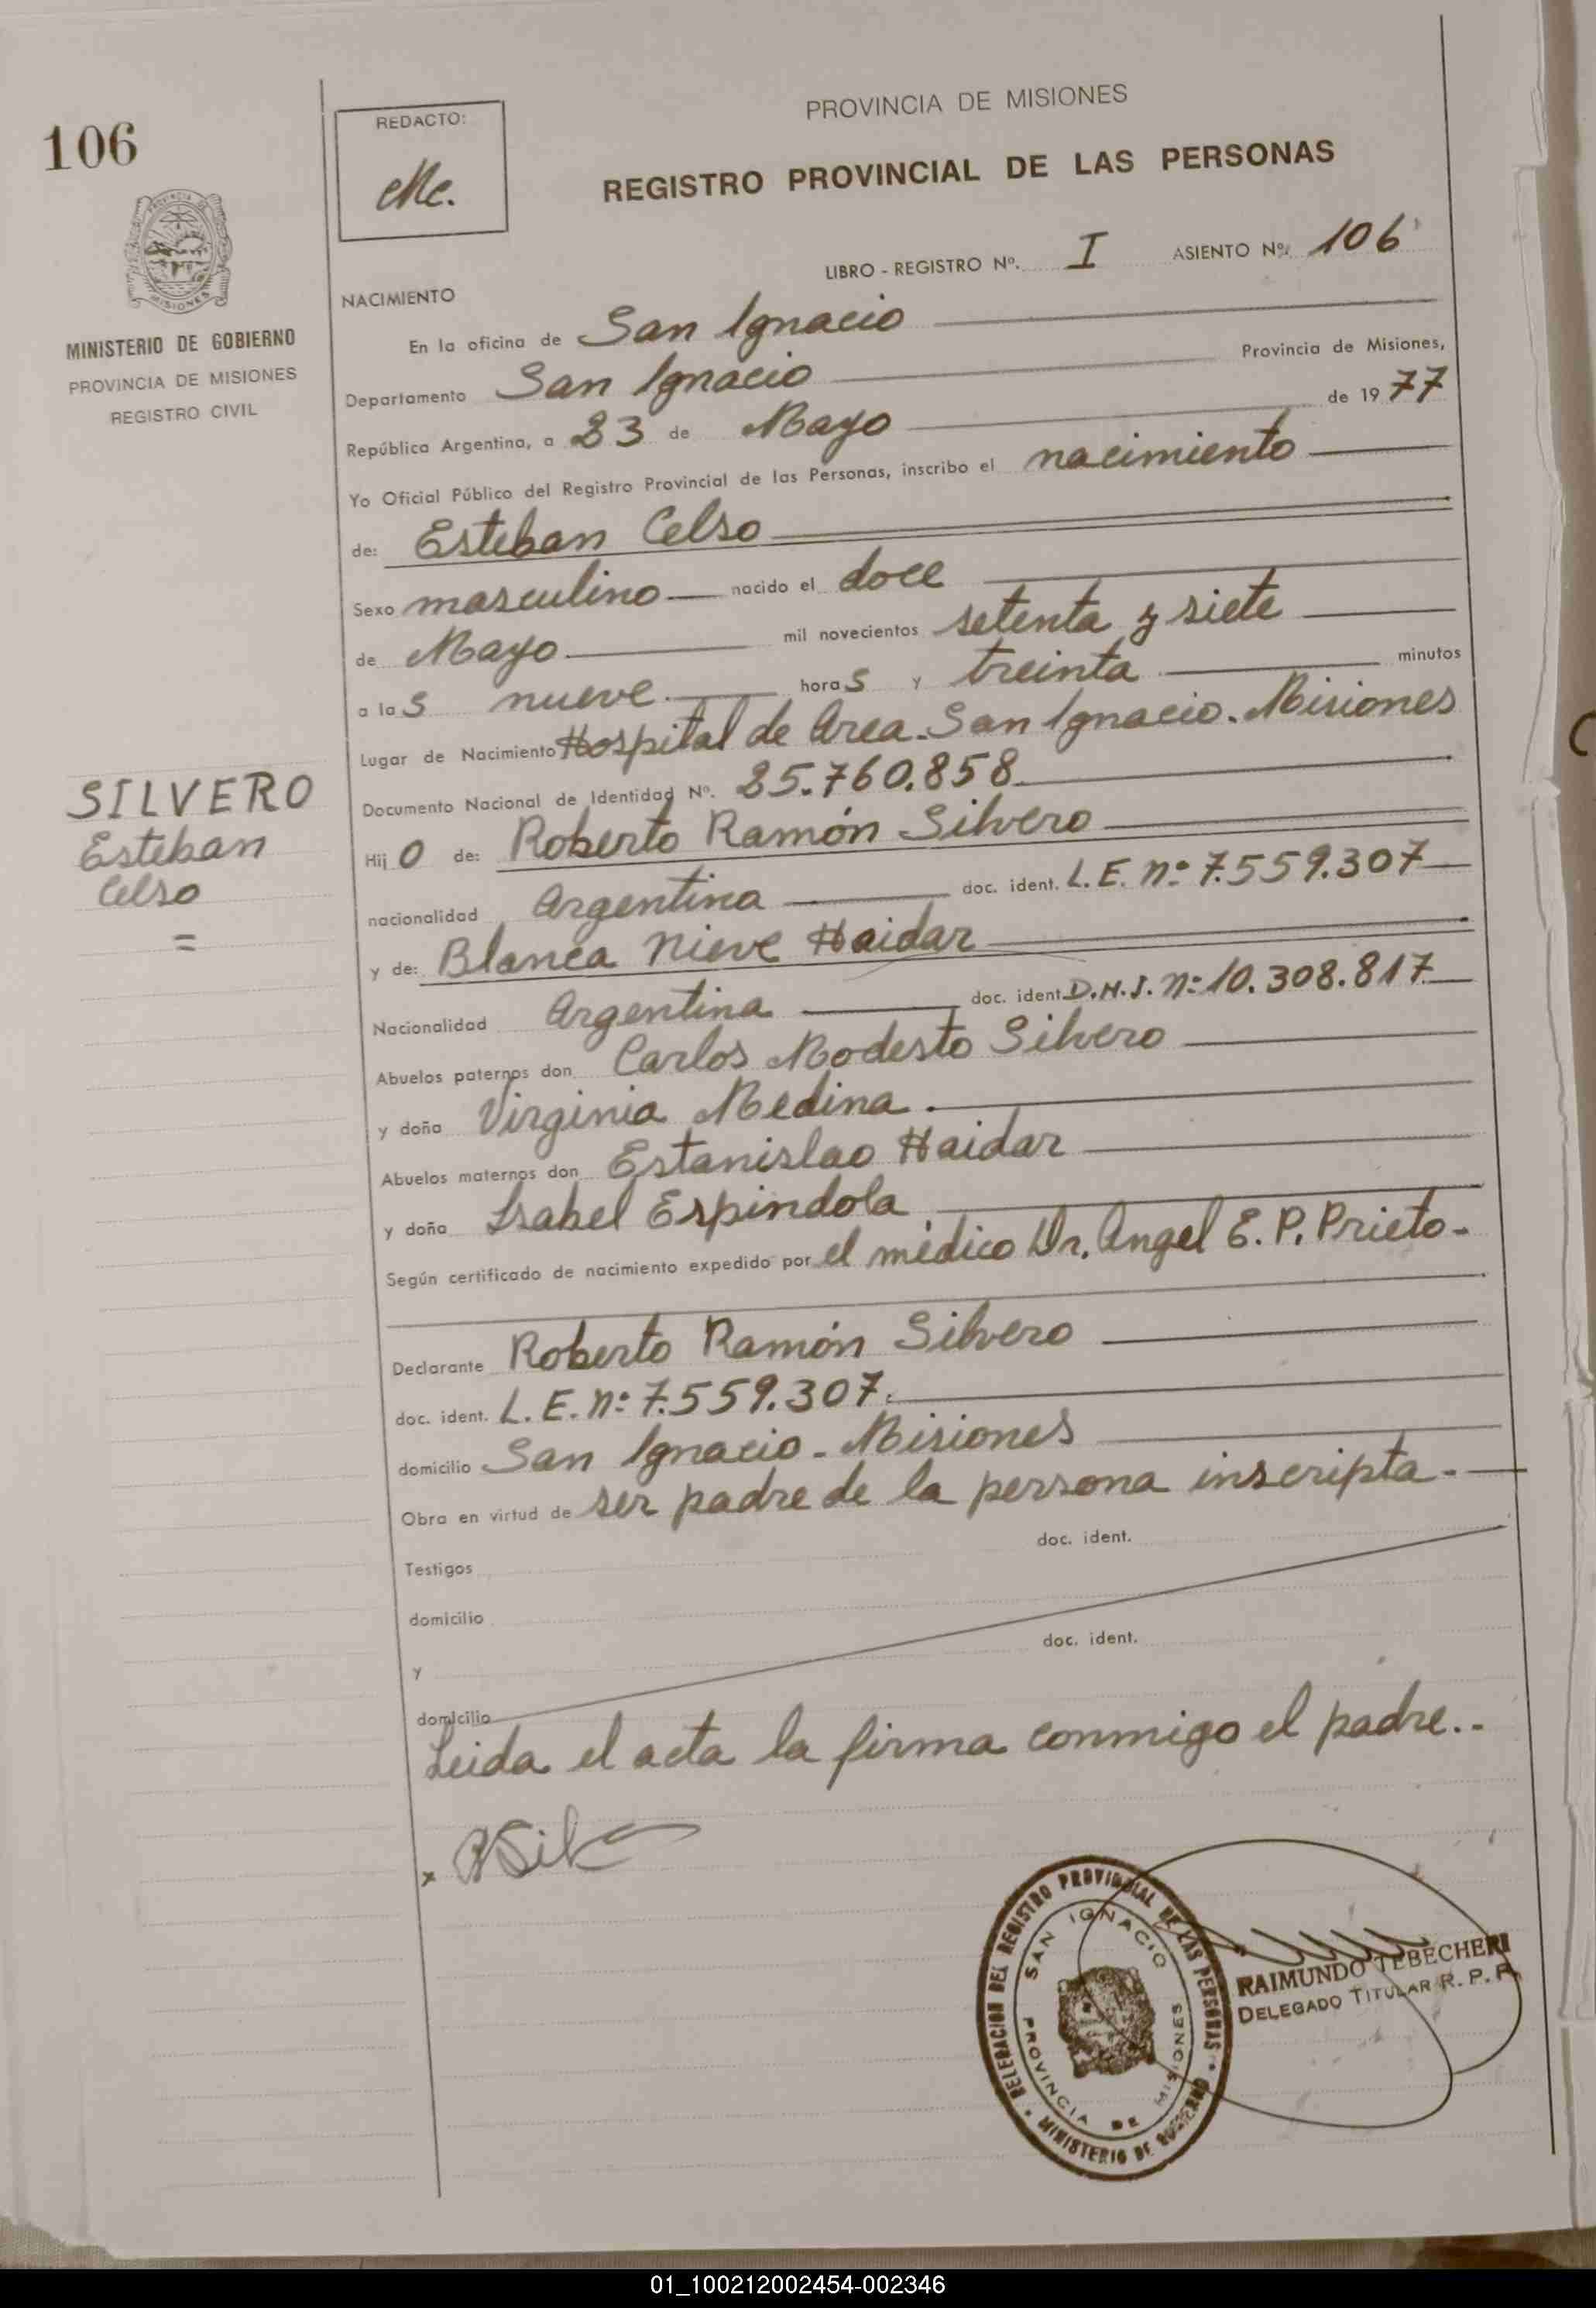 106
REDACTO:
PROVINCIA DE MISIONES
REGISTRO PROVINCIAL DE LAS PERSONAS
LIBRO - REGISTRO Nº. I ASIENTO Nº. 106
PROVINCIA DE
MISIONES
MINISTERIO DE GOBIERNO
PROVINCIA DE MISIONES
REGISTRO CIVIL
NACIMIENTO
En la oficina de San Ignacio
Departamento San Ignacio Provincia de Misiones,
República Argentina, a 23 de Mayo de 1977
Yo Oficial Público del Registro Provincial de las Personas, inscribo el nacimiento
de: Esteban Celso
Sexo masculino nacido el doce
de Mayo mil novecientos setenta y siete
a las nueve horas y treinta minutos
Lugar de Nacimiento Hospital de Area. San Ignacio. Misiones
Documento Nacional de Identidad Nº. 25.760.858
SILVERO
Esteban
Celso
=
Hijo de: Roberto Ramón Silvero
nacionalidad Argentina doc. ident. L.E. nº 7.559.307
y de: Blanca Nieve Haidar
Nacionalidad Argentina doc. ident. D.N.I. nº 10.308.817
Abuelos paternos don Carlos Modesto Silvero
y doña Virginia Medina.
Abuelos maternos don Estanislao Haidar
y doña Isabel Espindola
Según certificado de nacimiento expedido por el médico Dr. Angel E. P. Prieto-
Declarante Roberto Ramón Silvero
doc. ident. L. E. nº 7.559.307.
domicilio San Ignacio - Misiones
Obra en virtud de ser padre de la persona inscripta.-
doc. ident.
Testigos
domicilio
doc. ident.
y
domicilio
Leida el acta la firma conmigo el padre..-
x
DELEGACION DEL REGISTRO PROVINCIAL DE LAS PERSONAS
MINISTERIO DE GOBIERNO
SAN IGNACIO
PROVINCIA DE MISIONES
RAIMUNDO TEBECHERI
DELEGADO TITULAR R. P. P.
01_100212002454-002346